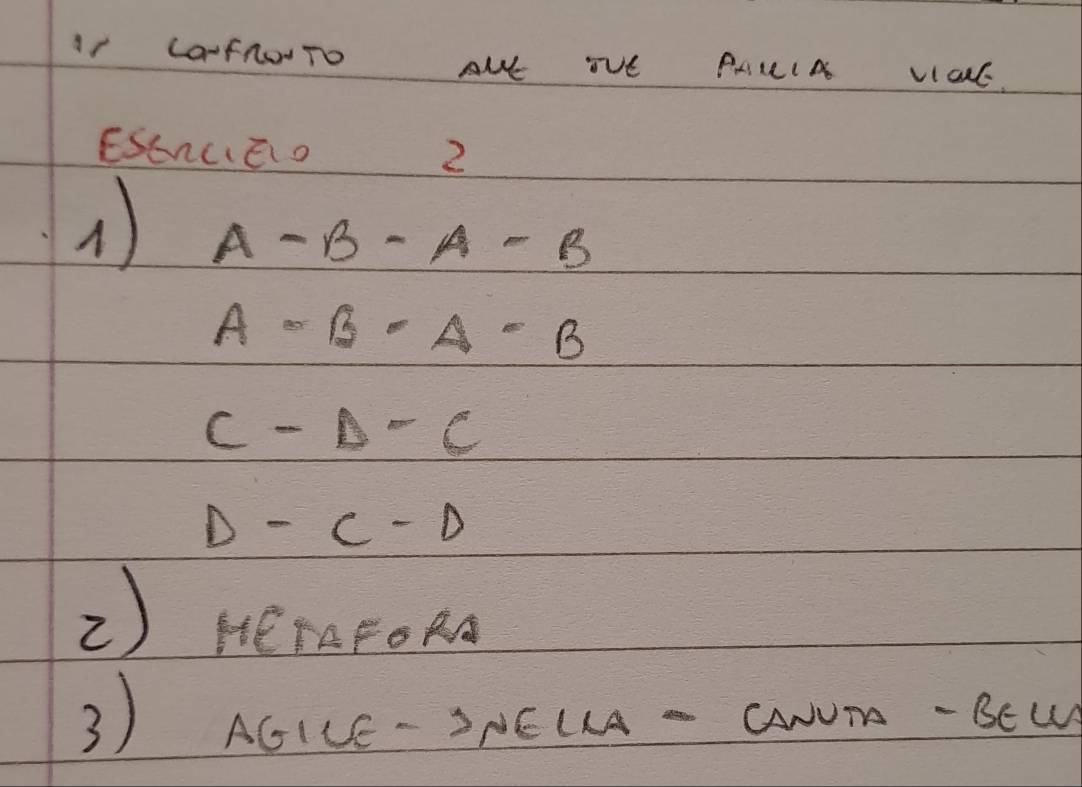 CONFRONTO ALLE TUE
ESERCIZIO 2
1) A - B - A - B
A - B - A - B
C - D - C
D - C - D
2) METAFORA
3) AGILE - SNELLA - CANUTA - BELLA